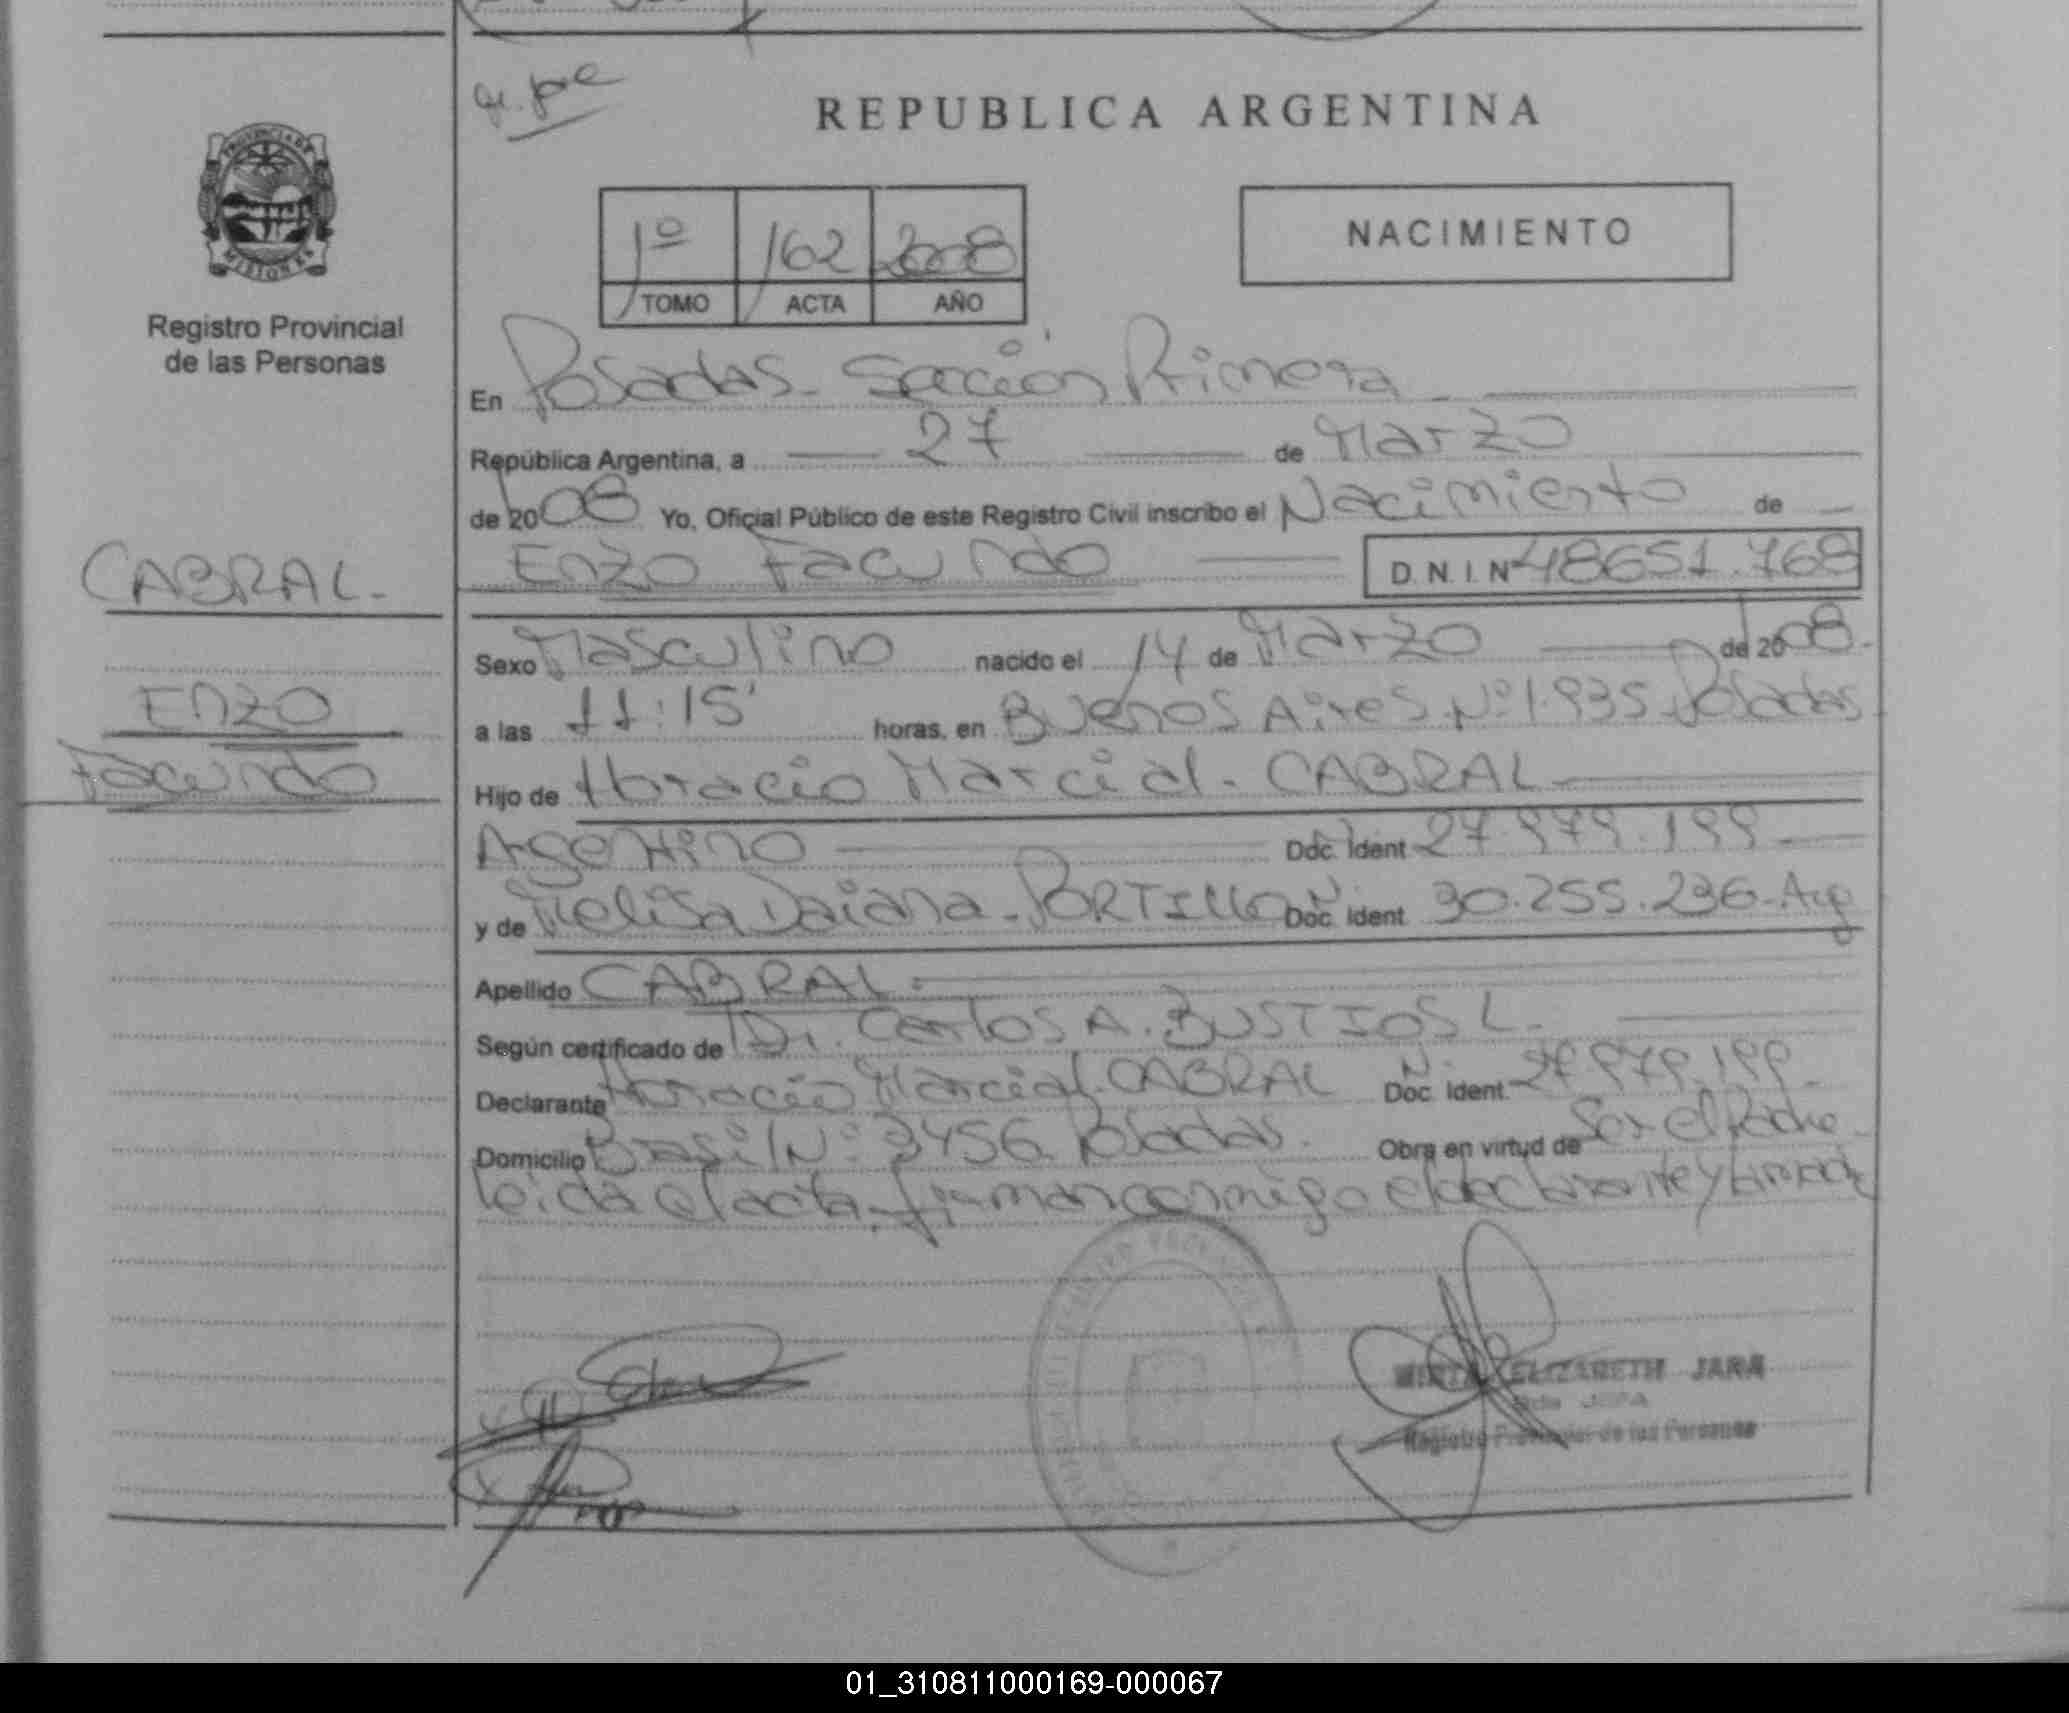 REPUBLICA ARGENTINA
PROVINCIA DE
MISIONES
Registro Provincial
de las Personas
1º 162 2008
TOMO ACTA AÑO
NACIMIENTO
En Posadas - Sección Primera
República Argentina, a 27 de Marzo
de 2008 Yo, Oficial Público de este Registro Civil inscribo el Nacimiento de
Enzo Facundo D.N.I. Nº 48651.768
CABRAL-
Enzo
Facundo
Sexo Masculino nacido el 14 de Marzo de 2008.
a las 11:15' horas, en Buenos Aires Nº 1.935 Posadas
Hijo de Horacio Marcial - CABRAL
Argentino Doc. Ident 27.979.199
y de Melisa Daiana - PORTILLO Doc. Ident 30.255.236-Arg
Apellido CABRAL
Según certificado de Dr. Carlos A. BUSTIOS L.
Declarante Horacio Marcial CABRAL Doc. Ident. 27.979.199
Domicilio Brasil Nº 3456 Posadas. Obra en virtud de Ser el Padre
leida el acta, firman conmigo el declarante y la madre
MIRTA ELIZABETH JARA
Registro Provincial de las Personas
01_310811000169-000067